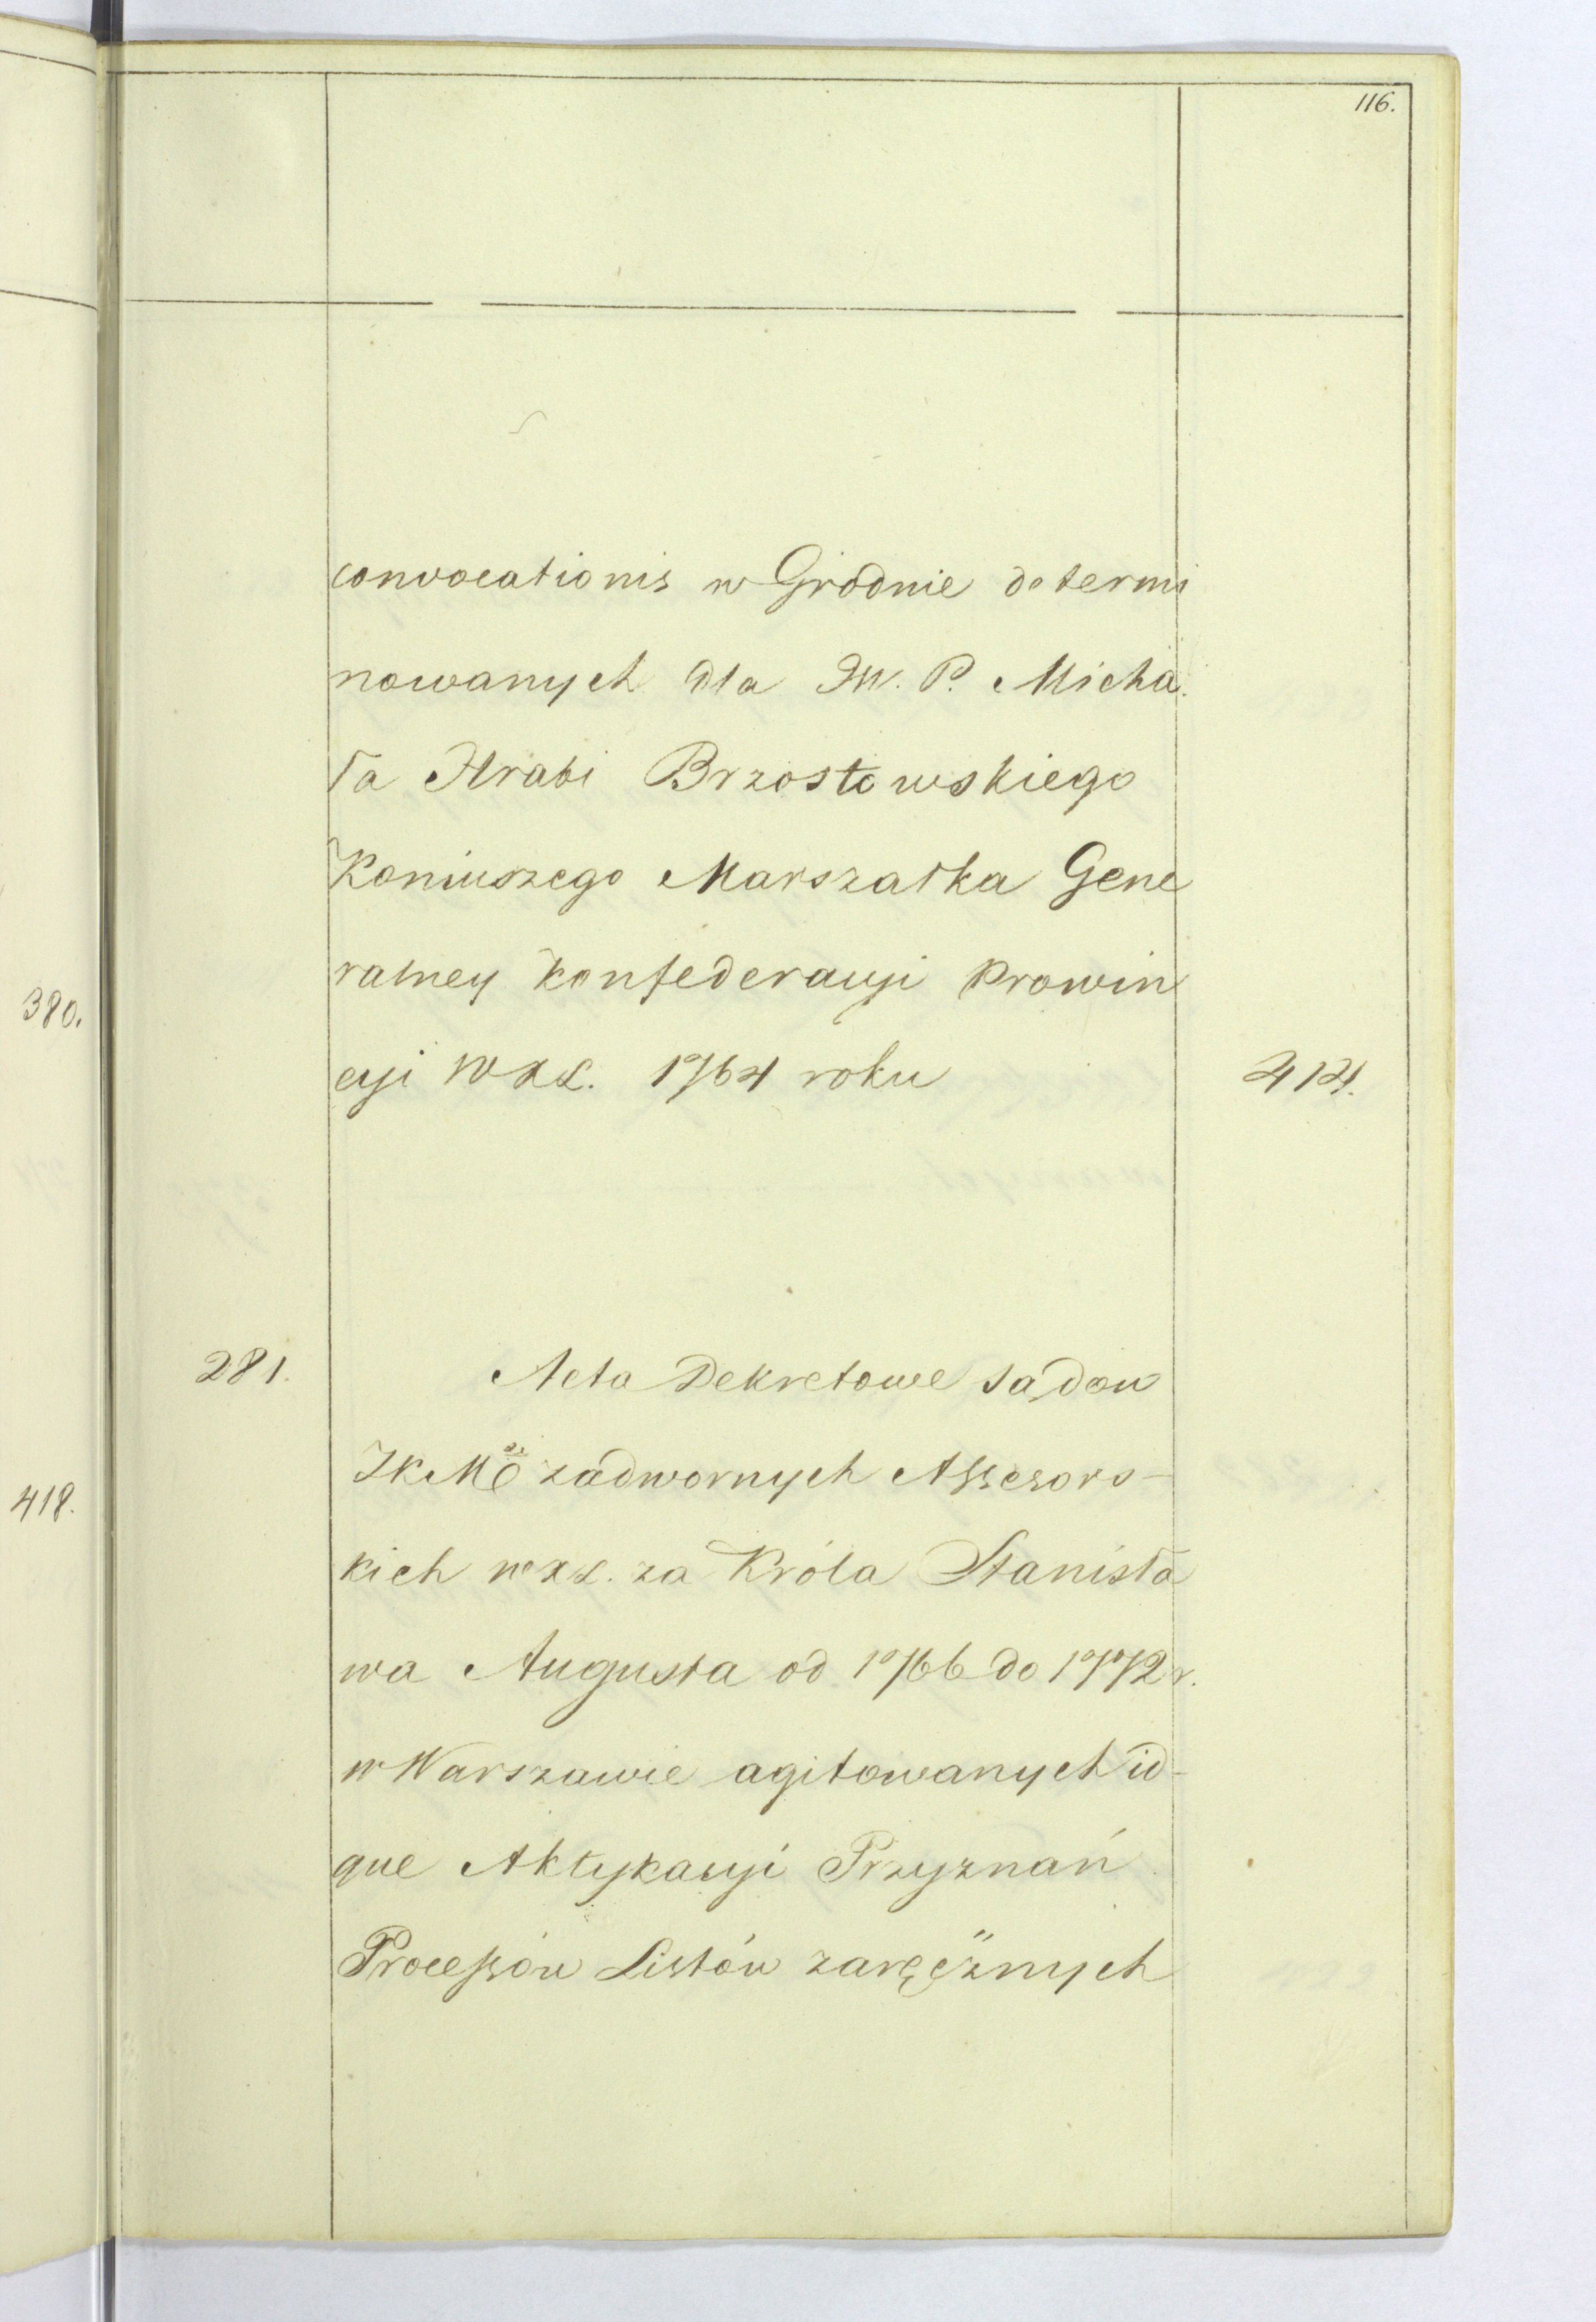 116.
convocationis w Grodnie determi
nowanych dla JW. P. Micha
ła Hrabi Brzostowskiego
Koniuszego Marszałka Gene
ralney Konfederacyi Prowin
cyi WXL. 1764 roku 414.
380.
281. Acta Dekretowe Sądow
JKMci zadwornych Assesors-
418.
kich WXL. za Króla Stanisła
wa Augusta od 1766 do 1772 r.
w Warszawie agitowanych id-
que Aktykacyi Przyznań
Processów Listów zaręcznych